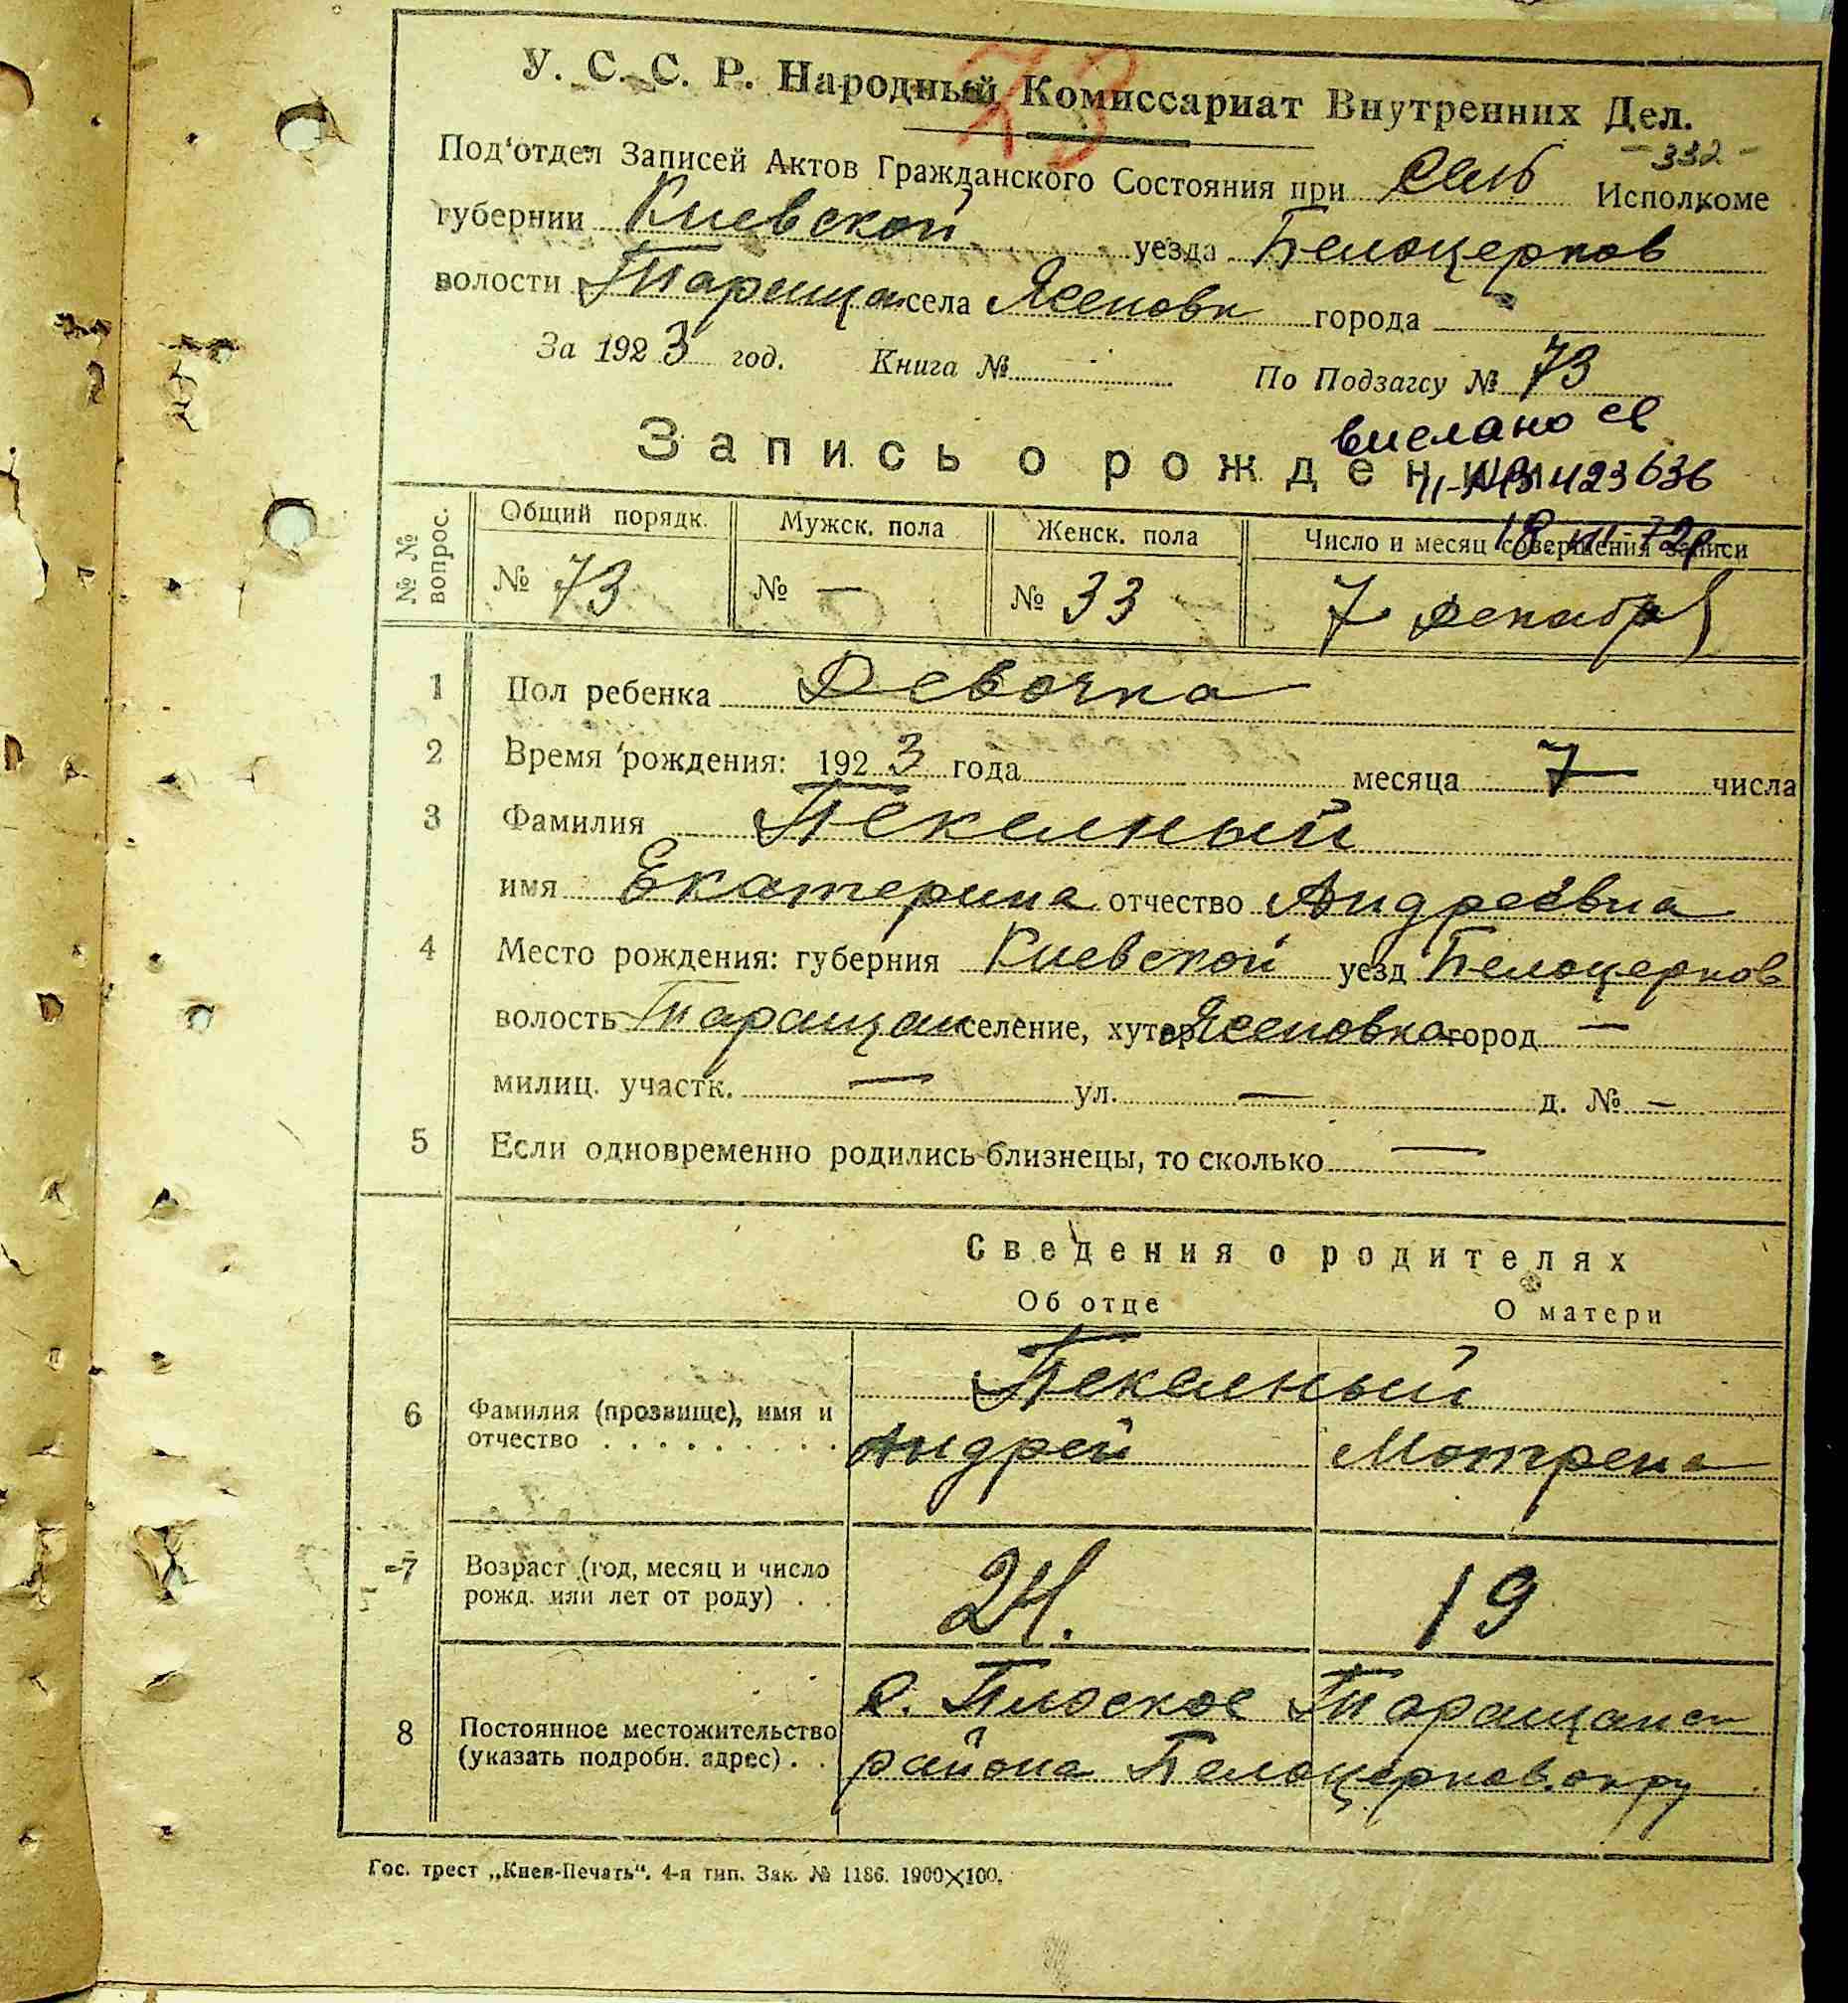 73
У. С. С. Р. Народный Комиссариат Внутренних Дел.
- 332 -
Под'отдел Записей Актов Гражданского Состояния при Сель Исполкоме
губернии Киевской уезда Белоцерков
волости Тараща села Ясеновк города
За 1923 год. Книга № По Подзагсу № 73
вислано св
Запись о рождении
423636
№ № вопрос. Общий порядк. Мужск. пола Женск. пола Число и месяц совершения записи
18 VII-72р
№ 73 № — № 33 7 Декабря
1 Пол ребенка Девочка
2 Время рождения: 1923 года месяца 7 числа
3 Фамилия Пекельный
имя Екатерина отчество Андреевна
4 Место рождения: губерния Киевской уезд Белоцерков
волость Таращан селение, хутор Ясеновка город —
милиц. участк. — ул. — д. № —
5 Если одновременно родились близнецы, то сколько —
Сведения о родителях
Об отце О матери
Пекельный
6 Фамилия (прозвище), имя и
отчество . . . . . . . . . Андрей Мотрена
7 Возраст (год, месяц и число
рожд. или лет от роду) . . 24. 19
с. Плоское Таращанск
8 Постоянное местожительство
(указать подробн. адрес) . . района Белоцерков. окру
Гос. трест „Киев-Печать". 4-я тип. Зак. № 1186. 1900×100.